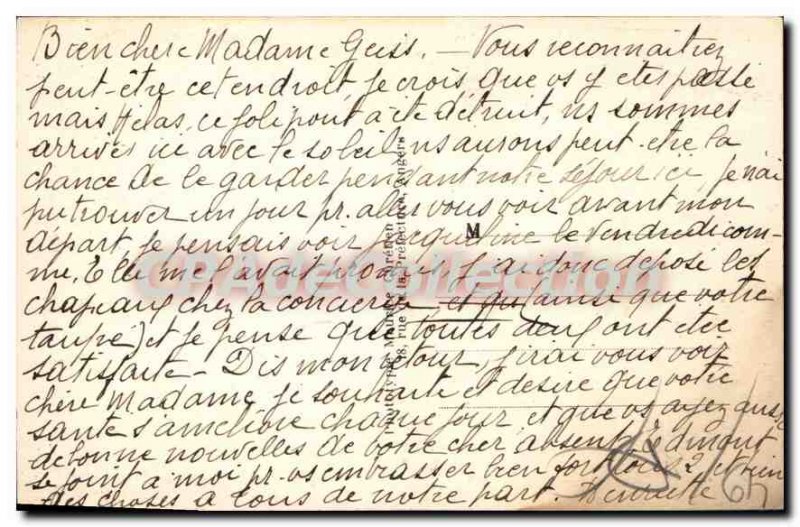 Bien chère Madame Geiss. — Vous reconnaitrez
peut-être cet endroit, je crois, que vs y etes passée
mais Hélas, ce joli pont a été détruit, ns sommes
arrivés ici avec le soleil ns aurons peut-etre la
chance de le garder pendant notre séjour ici, je n'ai
pu trouver un jour pr. aller vous voir avant mon
départ, je pensais voir Jacqueline le Vendredi com-
me. Elle me l'avait promis j'ai donc déposé les
chapeaux chez la concierge, et qu (ainsi que votre
taupe) et je pense que toutes deux ont étée
satisfaite — Dis mon retour, j'irai vous voir
chère Madame, je souhaite et désire que votre
santé s'améliore chaque jour, et que vs ayez aussi
de bonne nouvelles de votre cher absent, Edmont
se joint à moi pr. vs embrasser bien fort tous 2 et bien
des choses à tous de notre part. Henriette
M
CPADeCollection
rue de la Préfecture, Angers